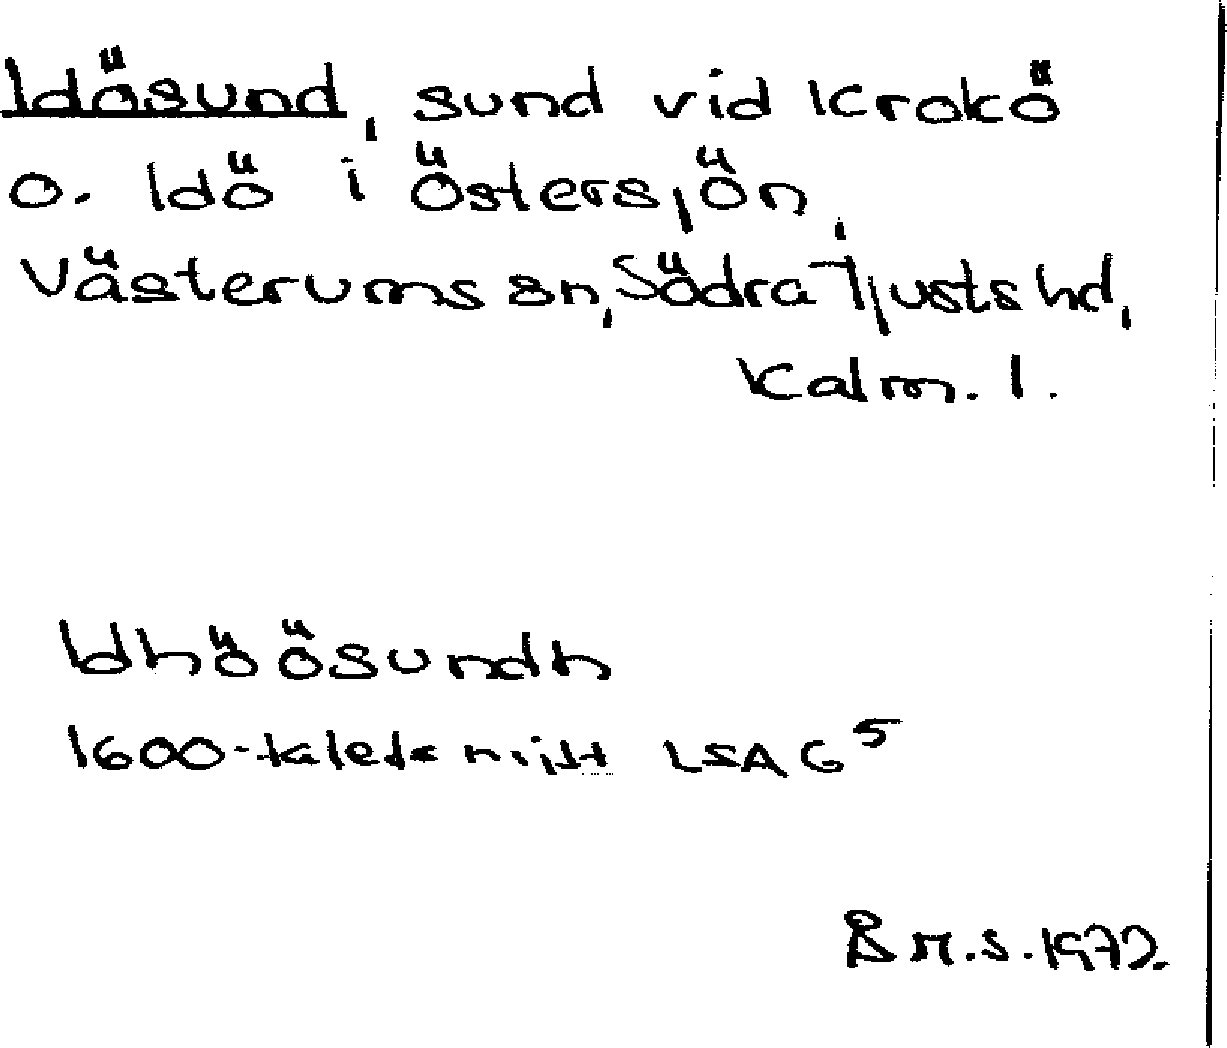 Idösund, sund vid Krokö
o. Idö i Östersjön,
Västerums sn, Södra Tjusts hd,
Kalm. l.
Idhöösundh
1600-talets mitt LSA G⁵
B M.S. 1972.